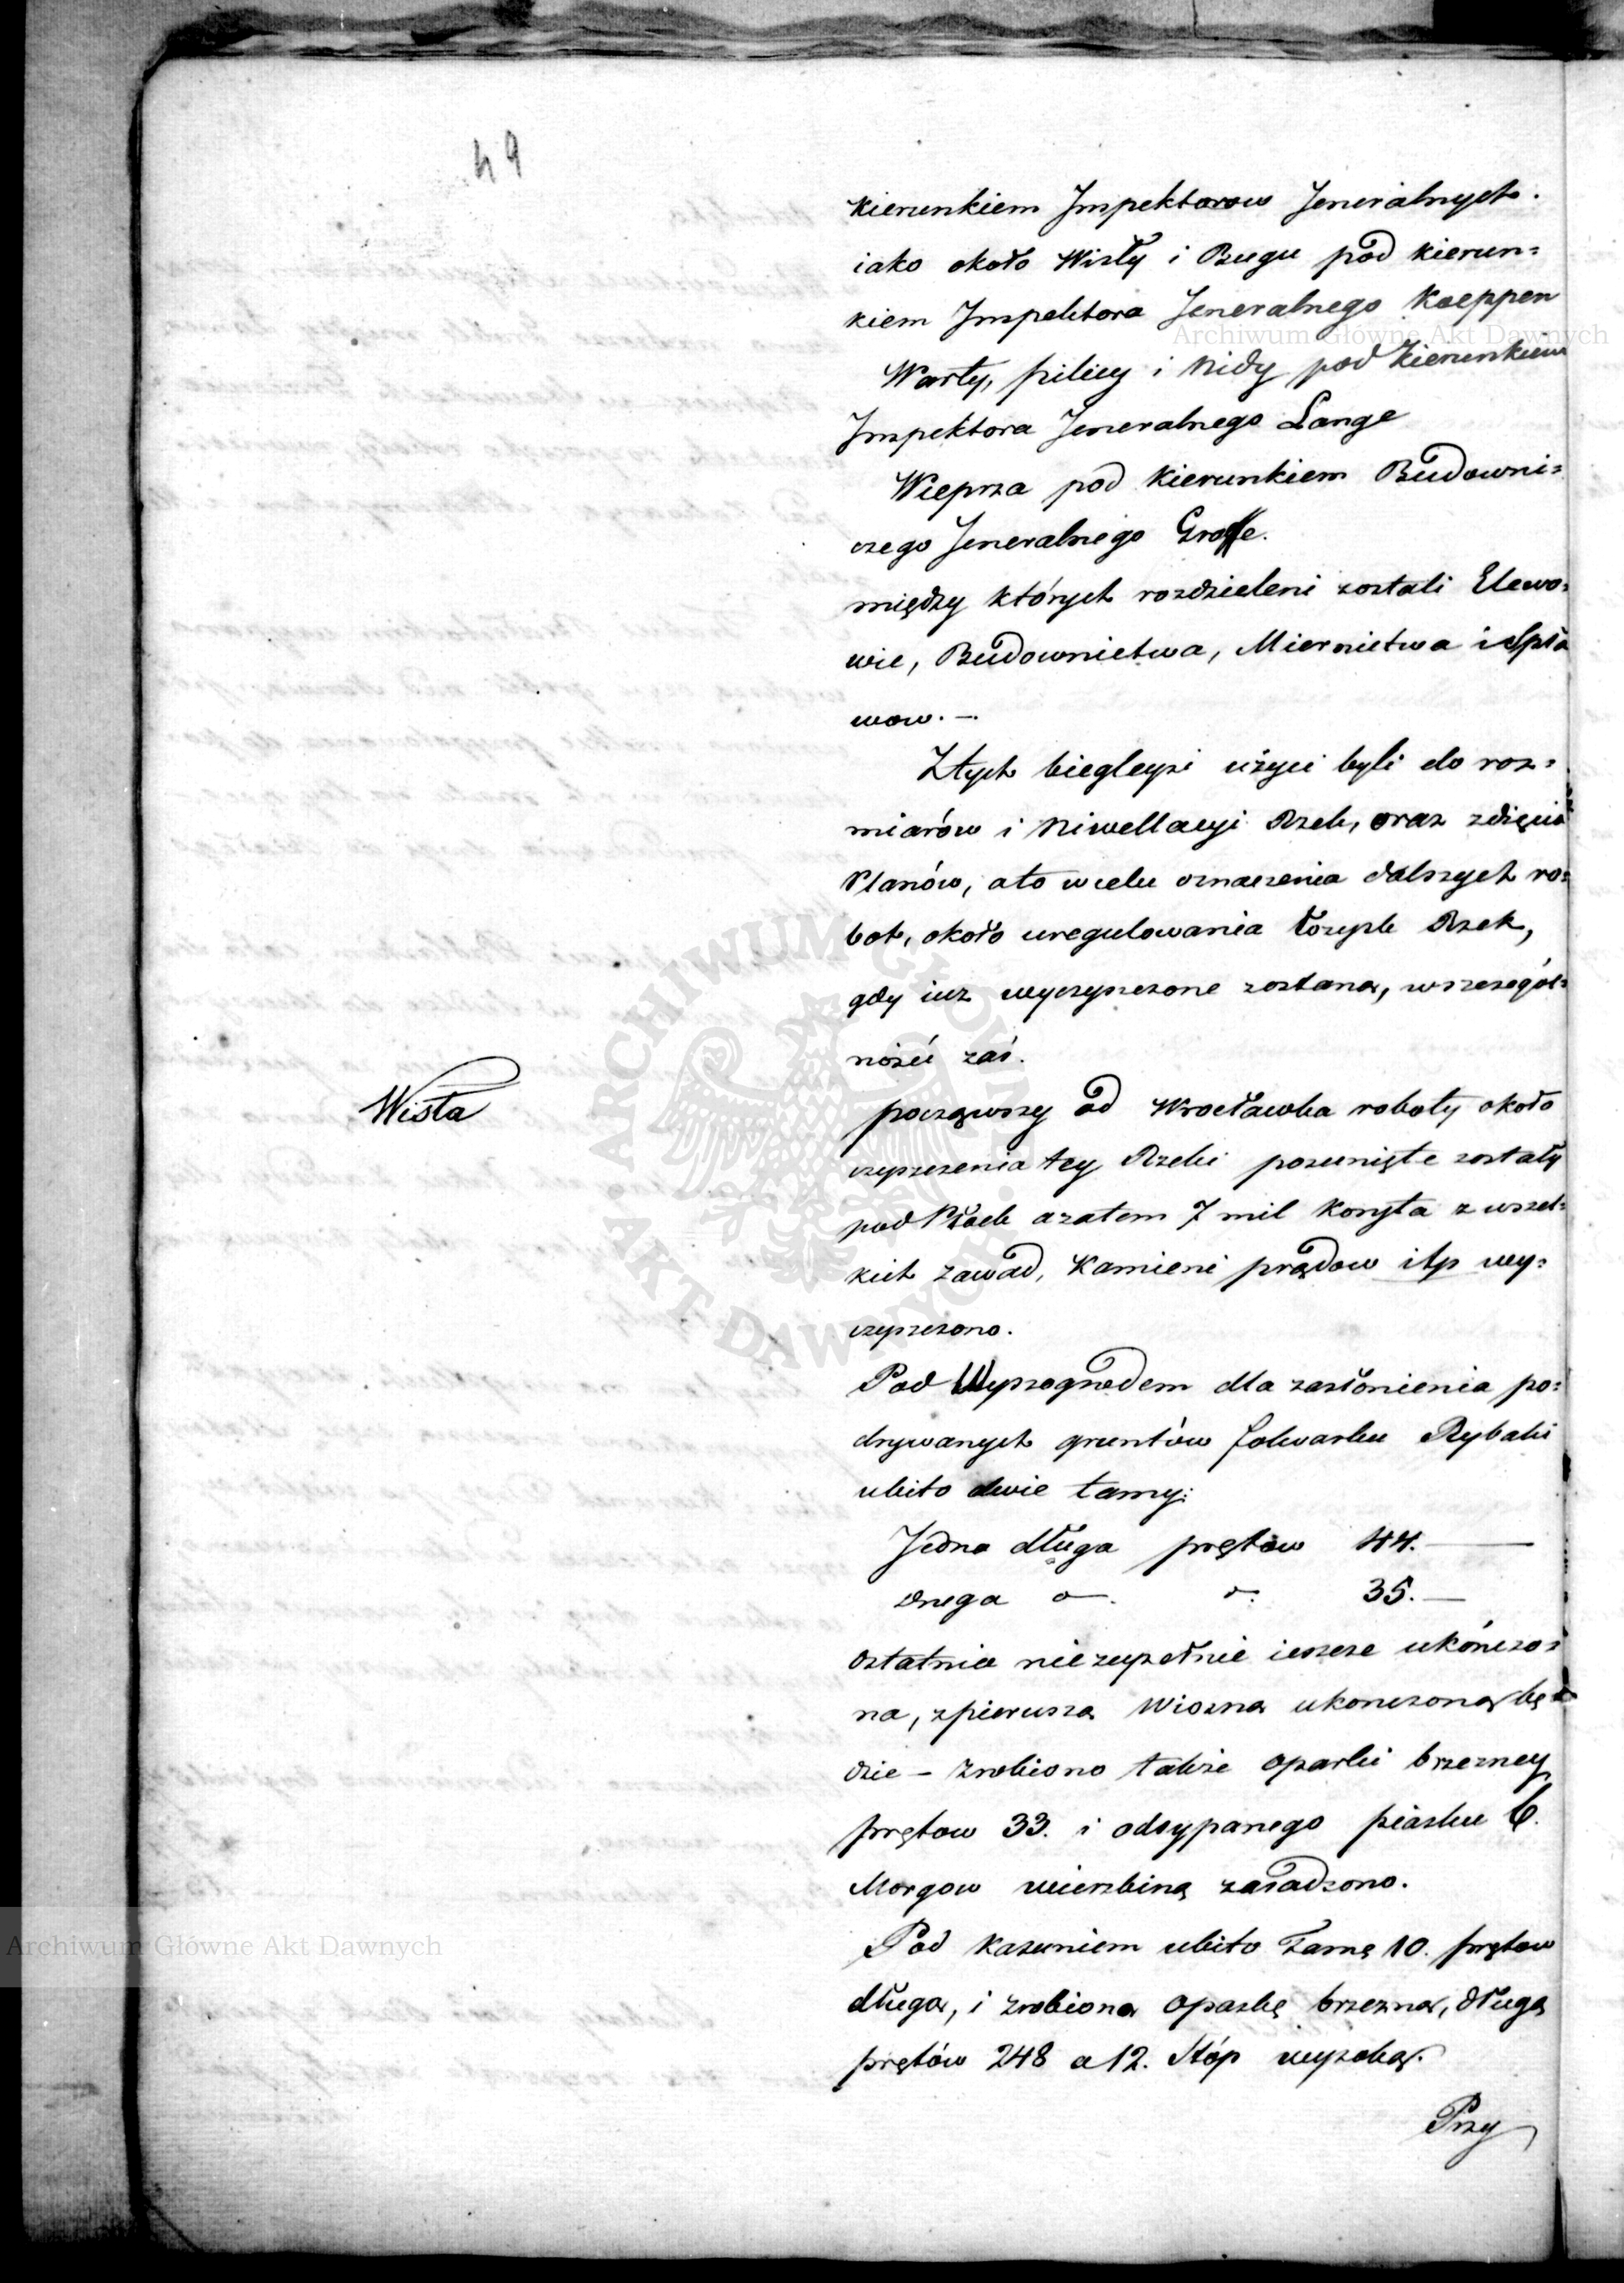 49
kierunkiem Jnspektorow Jeneralnych.
iako około Wisły i Bugu pod kierun=
kiem Jnspektora Jeneralnego Koeppen
Warty, pilicy i Nidy pod kierunkiem
Jnspektora Jeneralnego Lange
Wieprza pod kierunkiem Budowni=
czego Jeneralnego Groffe.
między których rozdzieleni zostali Elewo=
wie, Budownictwa, Miernictwa i Spła
wow. –.
Ztych bieglejsi użyci byli do roz=
miarów i Niwellacyi Rzek, oraz zdięcia
Planów, ato wcelu oznaczenia dalszych ro=
bot, około uregulowania łożysk Rzek,
gdy iuz wyczyszczone zostaną, wszczegól=
ności zaś.
Wisła
począwszy od Wrocławka roboty około
czyszczenia tey Rzeki posunięte zostały
pod Płock azatem 7 mil Koryta z wszel=
kich zawad, Kamieni prądow itp wy=
czyszczono.
Pod Wyszogrodem dla zasłonienia po=
drywanych gruntów folwarku Rybaki
ubito dwie tamy:
Jedna długa prętow 44. —
druga o—. o—. 35. —
ostatnia nie zupełnie ieszcze ukończo=
na, zpierwszą Wiosną ukonczoną bę=
dzie – Zrobiono także opaski brzezney
prętow 33. i odsypanego piasku 6.
Morgow wierzbiną zasadzono.
Pod Kazuniem ubito Tamę 10. prętow
długą, i zrobioną opaskę brzezną, długą
prętów 248 a 12. Stóp wysoką.
Przy
Archiwum Główne Akt Dawnych
Archiwum Główne Akt Dawnych
ARCHIWUM GŁÓWNE • AKT DAWNYCH •